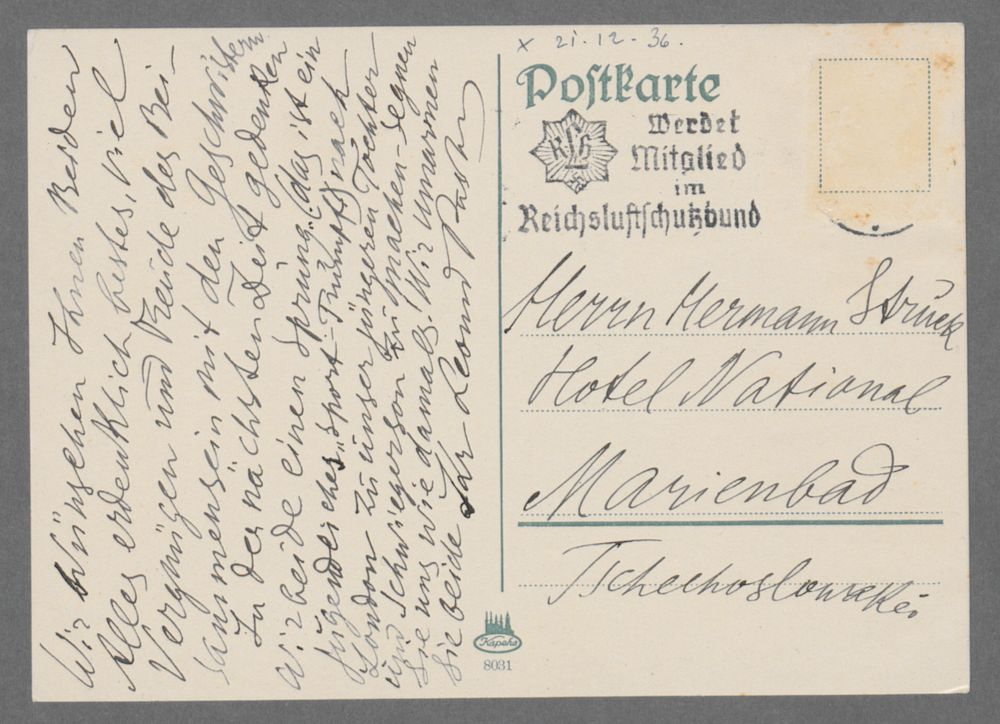 x 21.12-36.
Postkarte
RLB
Werdet
Mitglied
im
Reichsluftschutzbund
Herrn Hermann Struck
Hotel National
Marienbad
Tschechoslowakei
Wir wünschen Ihnen Beiden
Alles erdenklich bestes, viel
Vergnügen und Freude des Bei-
sammensein mit den Geschwistern
In der nächsten Zeit gedenken
wir beide einen Sprung (das ist ein
jugendlicher „Sport-Trumpf) nach
London zu unser jüngeren Tochter
und Schwiegerson zu machen-segnen
Sie uns wie damals. Wir umarmen
Sie beide Ihr Leonid
Kapeha
8031